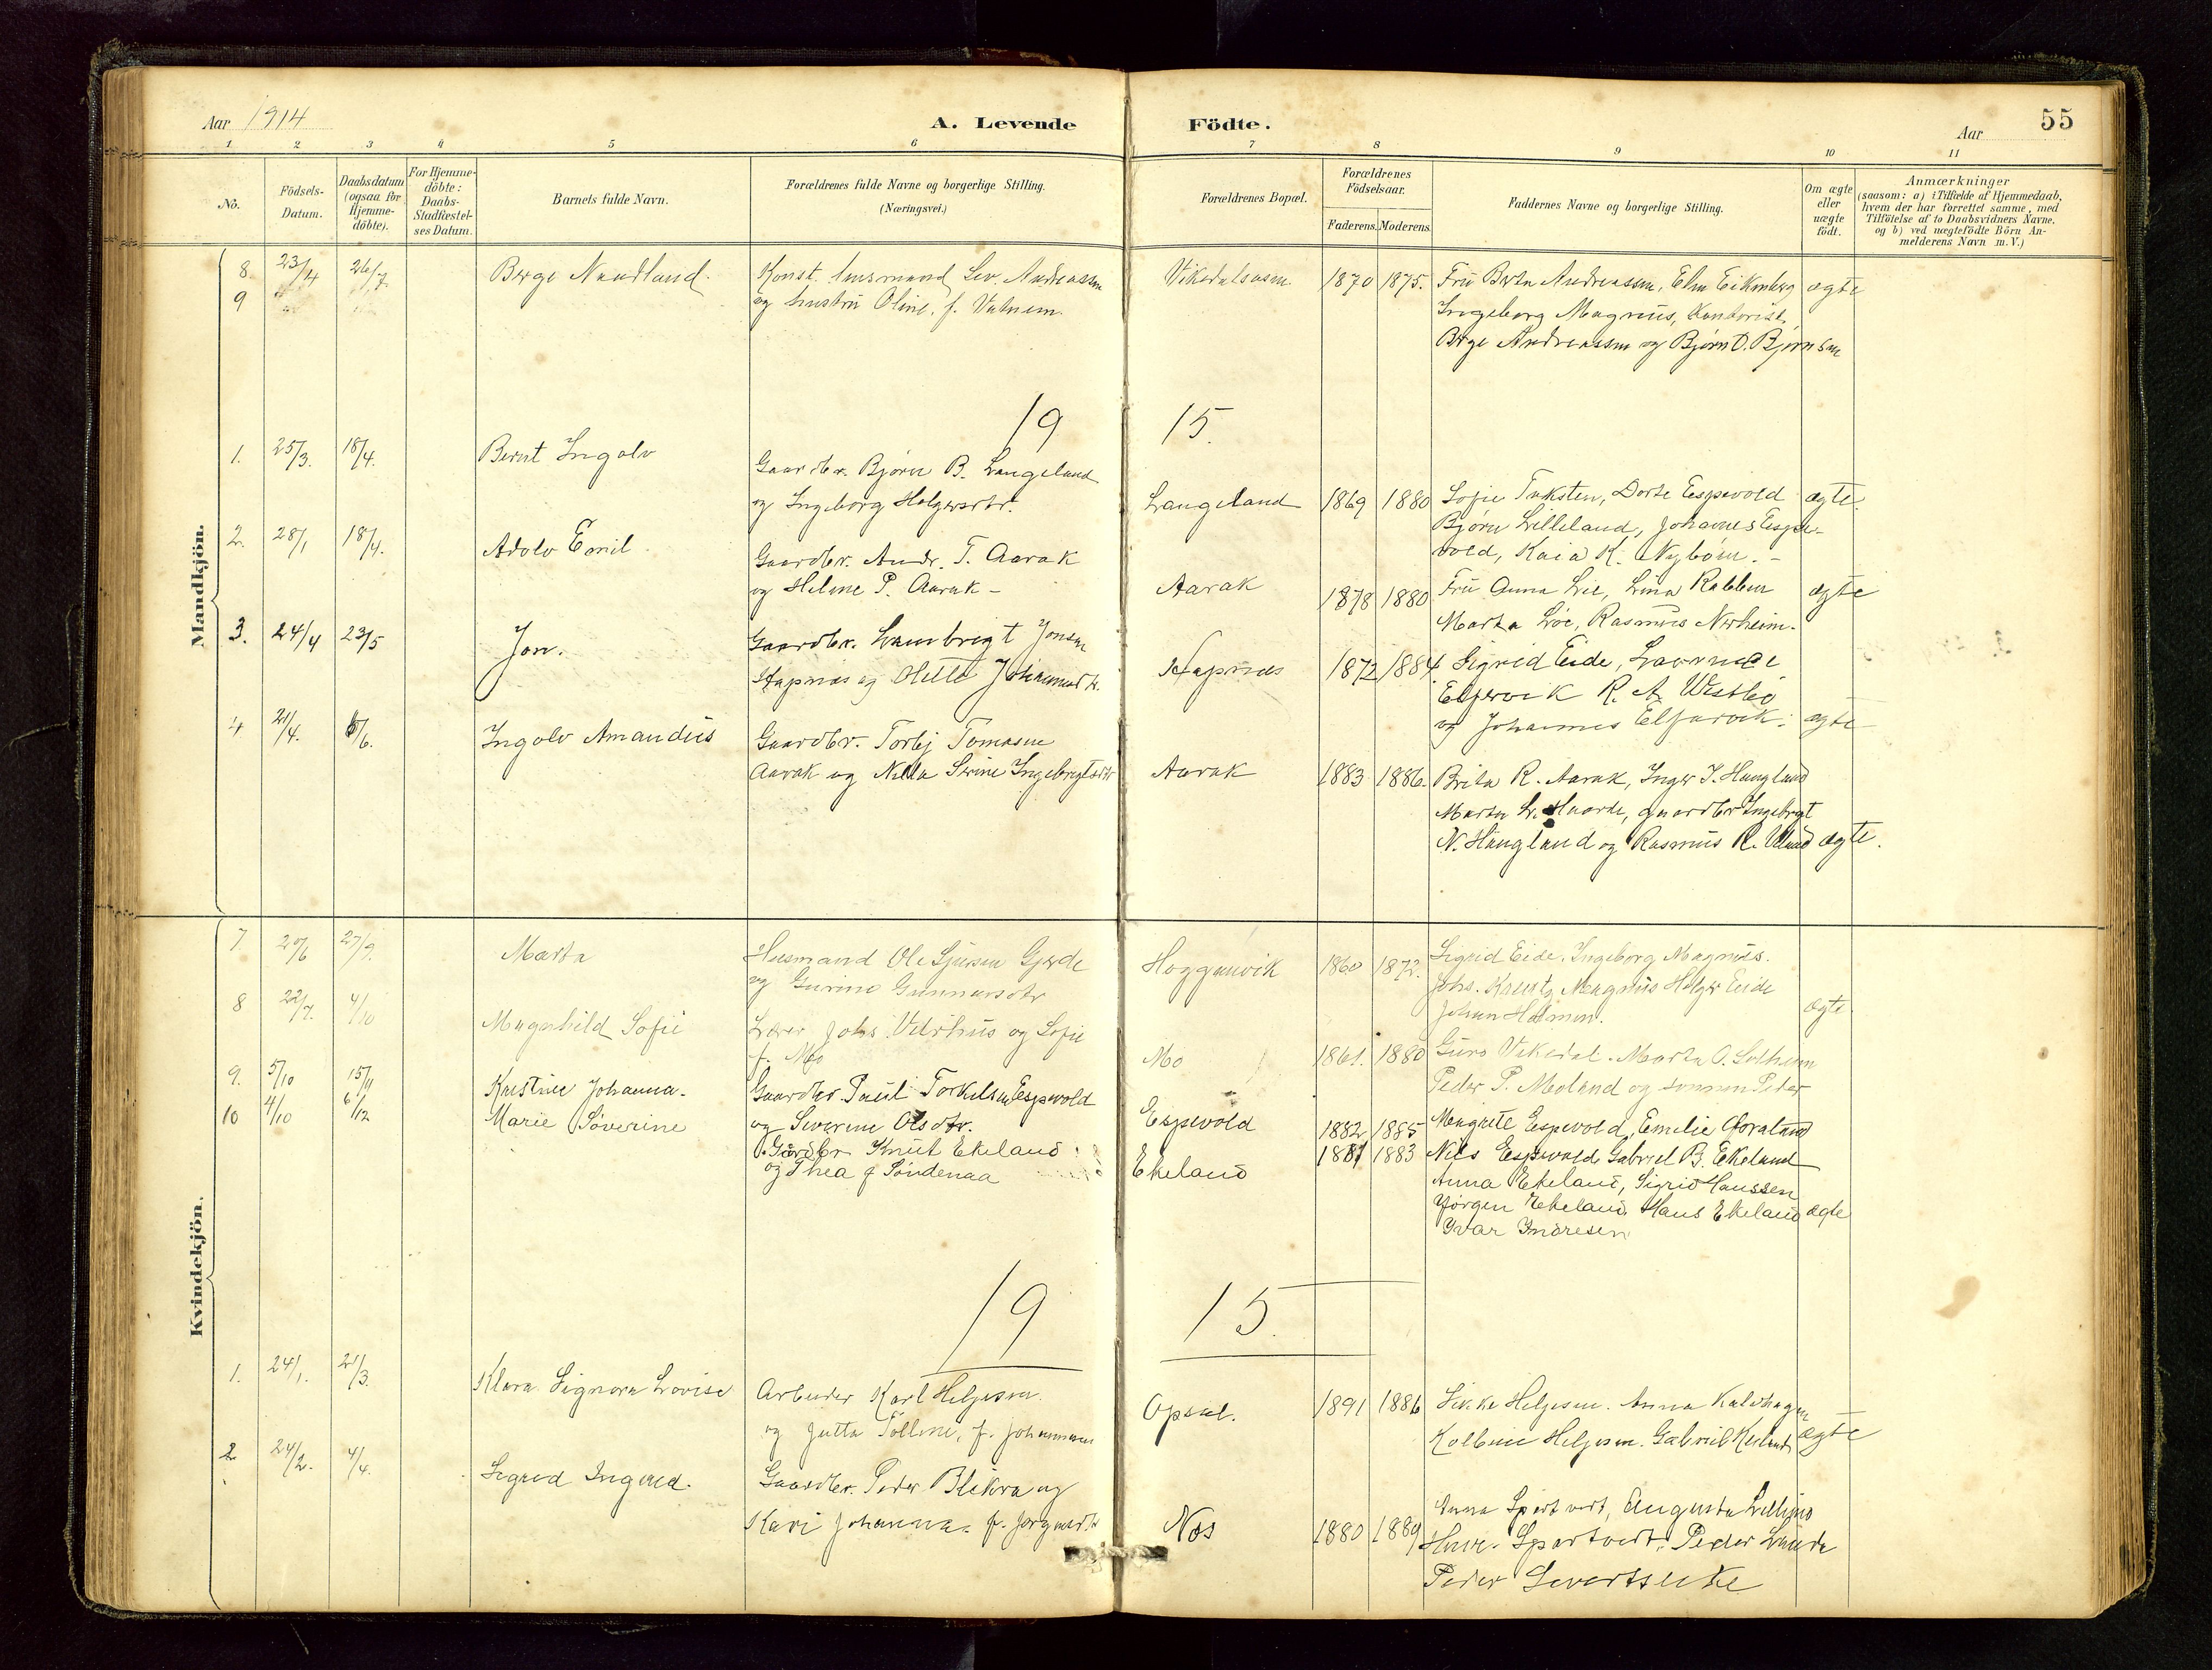 Aar 1914
A. Levende Födte.
Aar
55
1 2 3 4 5 6 7 8 9 10 11
No.
Födsels-
Datum.
Daabsdatum
(ogsaa for
Hjemme-
döbte).
For Hjemme-
döbte:
Daabs-
Stadfæstel-
ses Datum.
Barnets fulde Navn.
Forældrenes fulde Navne og borgerlige Stilling.
(Næringsvei.)
Forældrenes Bopæl.
Forældrenes
Födselsaar.
Faderens. Moderens.
Faddernes Navne og borgerlige Stilling.
Om ægte
eller
uægte
födt.
Anmærkninger
(saasom: a) i Tilfælde af Hjemmedaab,
hvem der har forrettet samme, med
Tilföielse af to Daabsvidners Navne,
og b) ved uægtefödte Börn An-
melderens Navn m. V.)
Mandkjön.
8. 23/4 26/7 Berge Naadland.
Konst. lensmand Sev. Andreassen
og hustru Oline, f. Vatnem.
1870 1875.
Fru Berta Andreassen,
Ingeborg Magnus, Kontorist,
Berge Andreassen og Bjørn O. Bjørnsen
ægte
9
19 15.
1. 25/3. 18/4. Bernt Ingolv
Gaardbr. Bjørn B. Langeland
og Ingeborg Holgersdtr.
Langeland 1869 1880
Sofie Taksten, Dorte Espevold
Bjørn Lilleland, Johannes Espe-
vold, Kaia K. Nybøen. -
ægte.
2. 28/1 18/4. Adolv Emil
Gaardbr. Andr. T. Aarak
og Helene P. Aarak -
Aarak 1878 1880
Fru Anna Lie, Lina Rabben
Marta Løe, Rasmus Nerheim.
ægte
3. 24/4 23/5 Jon.
Gaardbr. Lambrigt Jonsen
Stapnæs og Olette Johannesdtr.
Stapnæs 1872 1884
Sigrid Eide,
R. A. Westbø
og Johannes
ægte
4 21/4. 6/6. Ingolv Amandus
Gaardbr. Torbj Tomasen
Aarak og Nilla Serine Ingebrigtsdtr
Aarak 1883 1886.
Brita R. Aarak, Inger I. Haugland
Marta L. Haarde, gaardbr Ingebrigt
N. Haugland og Rasmus R. Ulland
ægte.
Kvindekjön.
7. 20/6 27/9. Marta
Husmand Ole Sjursen Gjerde
og Gurine Gunnarsdtr
Hogganvik 1860 1872.
Sigrid Eide, Ingeborg Magnus.
Johs. Kreutz Magnus Holger Eide
Johan Holmen.
ægte.
8 22/7. 4/10 Magnhild Sofie
Lærer Johs Velrhus og Sofie
f. Mo
Mo 1861. 1880
Guro Vikedal. Marta O. Solheim
Peder P. Moland og sønnen Peter
9. 5/10 15/11 Kristine Johanna.
Gaardbr Paul Torkelsen Espevold
og Severine Olsdtr.
Espevold 1882 1885
Magrete Espevold, Emilie Foraland
Nils Espevold Gabriel B. Ekeland
10 4/10 6/12 Marie Søverine
Gårdbr Knut Ekeland
og Thea f Søndenaa
Ekeland 1881 1883
Anna Ekeland, Sigrid Hanssen
Jørgen Ekeland, Hans Ekeland
Ivar Indresen
ægte
19 15.
1. 24/1. 21/3. Klara Signora Lovise
Arbeider Karl Heljesen.
og Jutta Tolline, f. Johannesen
Opsal. 1891 1886
Sikke Heljesen. Anna Kaldhagen
Kolbein Heljesen. Gabriel
ægte
2 24/2. 4/4. Sigred Ingered.
Gaardbr. Peder Blikra og
Kari Johanna, f. Jørgensdtr
Nes 1880 1889
Anna Spertvedt, Augusta
Spertvedt, Peder Lunde
Peder